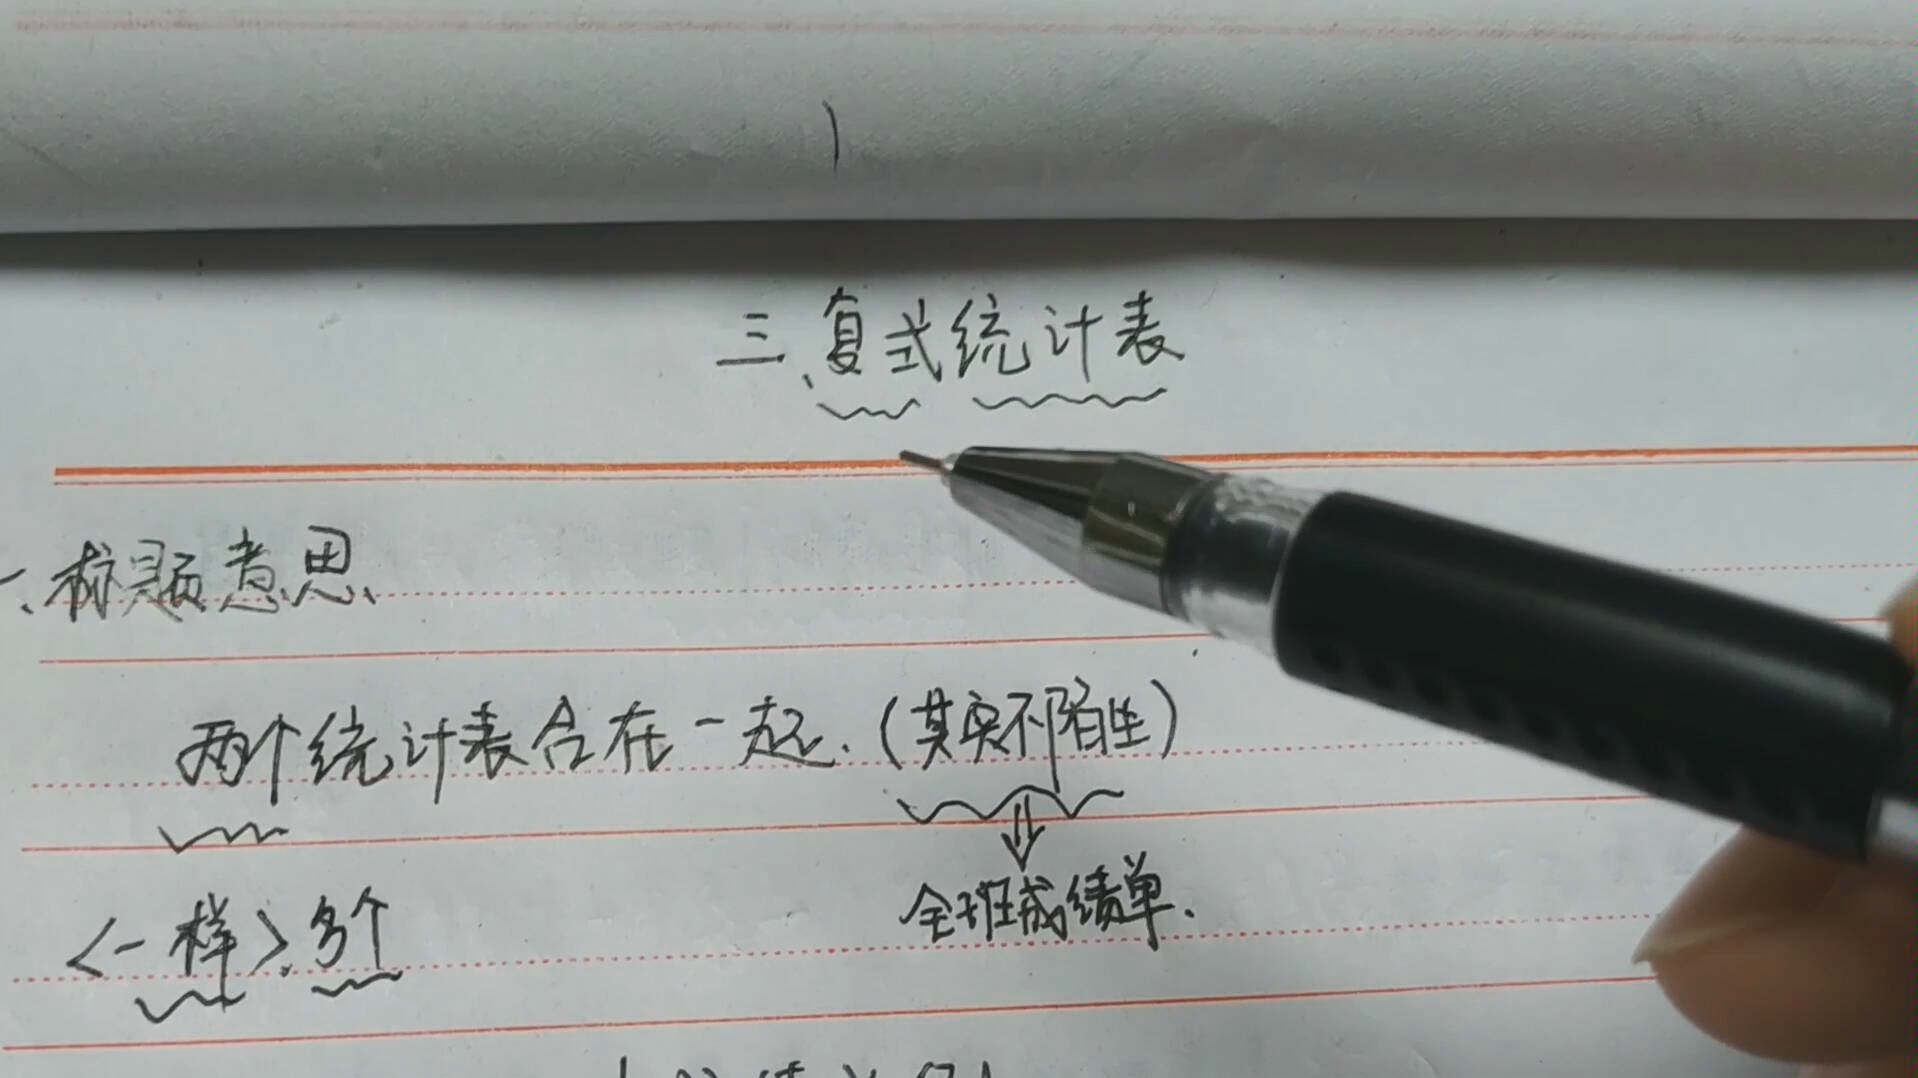 三、复式统计表
一、标题意思、
两个统计表合在一起.(其实不陌生)
<一样>、多个
全班成绩单.